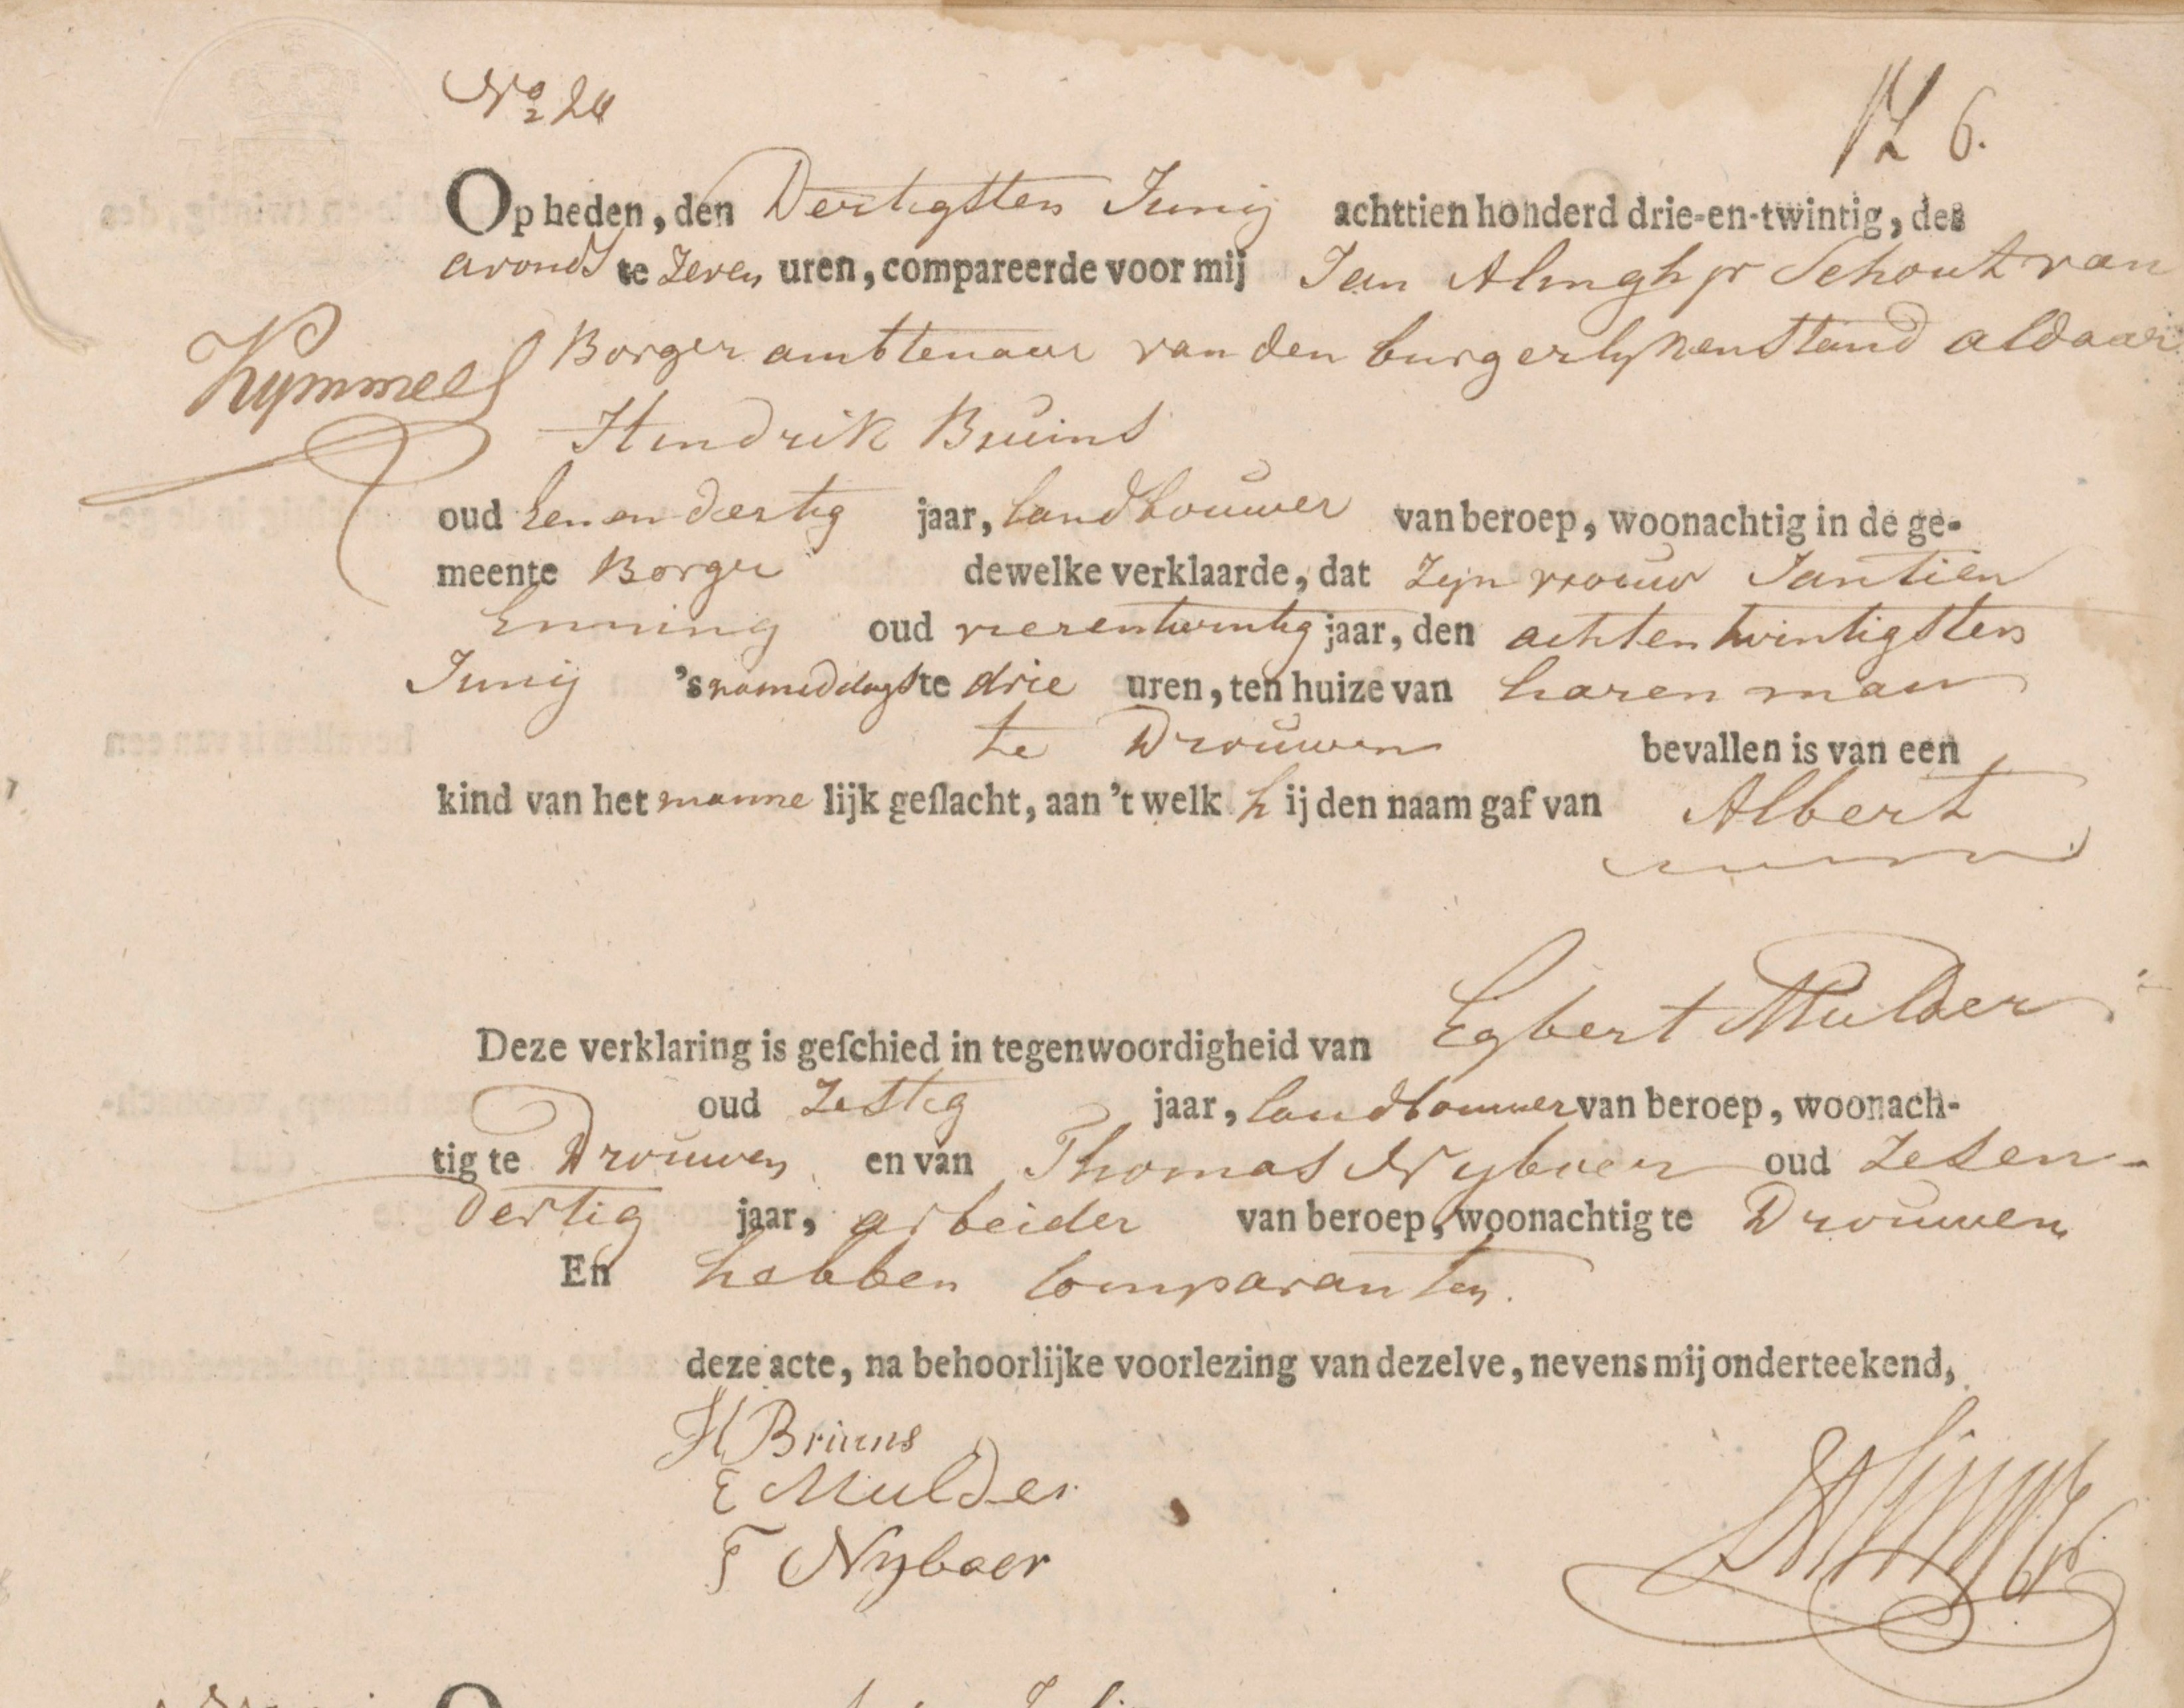 No 20
6.
Op heden, den Dertigsten Junij achttien honderd drie-en-twintig, des
avonds te Zeven uren, compareerde voor mij Jan Alingh jr Schout van
Kymmell
Borger ambtenaar van den burgerlyken Stand aldaar
Hendrik Bruins
oud Eenendertig jaar, landbouwer van beroep, woonachtig in de ge-
meente Borger dewelke verklaarde, dat Zyn vrouw Jantien
Enning oud vierentwintig jaar, den achtentwintigsten
Junij 's namiddags te drie uren, ten huize van haren man
te Drouwen bevallen is van een
kind van het manne lijk geslacht, aan 't welk h ij den naam gaf van Albert
Deze verklaring is geschied in tegenwoordigheid van Egbert Mulder
oud Zestig jaar, landbouwer van beroep, woonach-
tig te Drouwen en van Thomas Nyboer oud Zesen-
dertig jaar, arbeider van beroep, woonachtig te Drouwen
En hebben Comparanten.
deze acte, na behoorlijke voorlezing van dezelve, nevens mij onderteekend,
H Bruins
E Mulder
T Nyboer